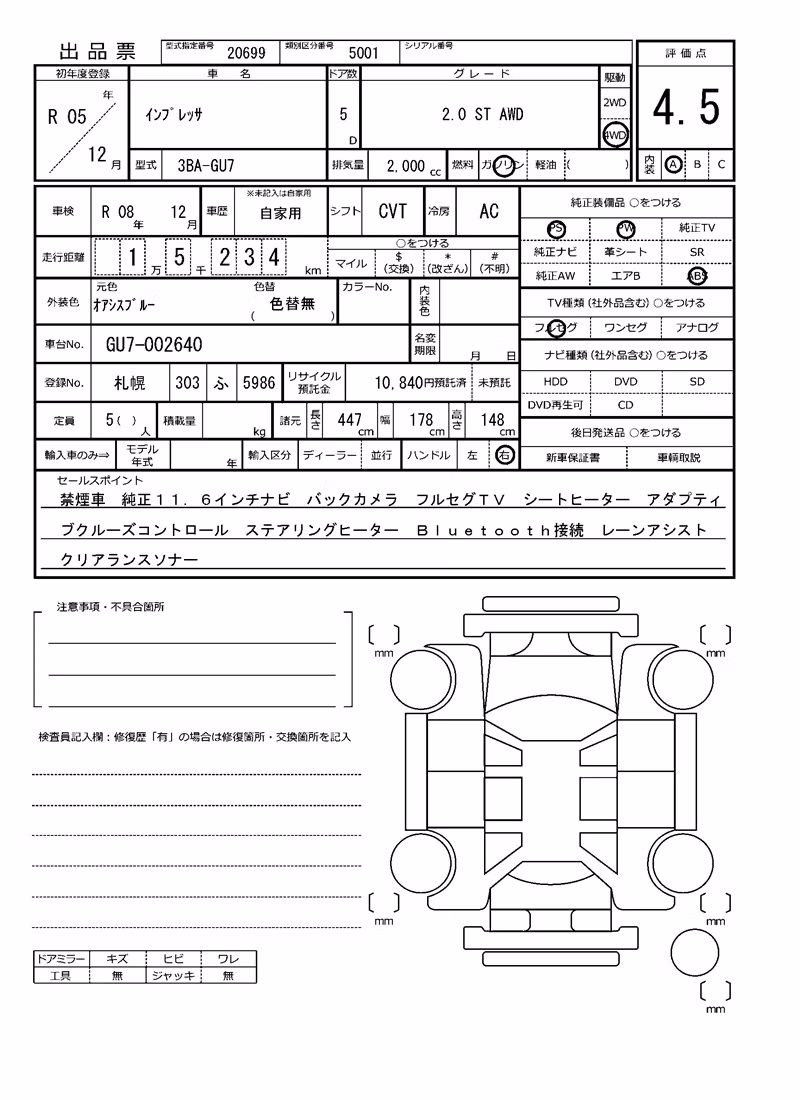 出品票 型式指定番号 20699 類別区分番号 5001 シリアル番号
評価点
4.5
内装 A B C
初年度登録 車名 ドア数 グレード 駆動
R 05 年 12 月 インプレッサ 5 D 2.0 ST AWD 2WD 4WD
型式 3BA-GU7 排気量 2,000 cc 燃料 ガソリン 軽油 ( )
車検 R 08 年 12 月 車歴 ※未記入は自家用 自家用 シフト CVT 冷房 AC
走行距離 1 万 5 千 2 3 4 km ○をつける
マイル $ (交換) * (改ざん) # (不明)
外装色 元色 オアシスブルー 色替 ( 色替無 ) カラーNo. 内装色
車台No. GU7-002640 名変期限 月 日
登録No. 札幌 303 ふ 5986 リサイクル預託金 10,840円預託済 未預託
定員 5( ) 人 積載量 kg 諸元 長さ 447 cm 幅 178 cm 高さ 148 cm
輸入車のみ⇒ モデル年式 年 輸入区分 ディーラー 並行 ハンドル 左 右
純正装備品 ○をつける
PS PW 純正TV
純正ナビ 革シート SR
純正AW エアB ABS
TV種類(社外品含む)○をつける
フルセグ ワンセグ アナログ
ナビ種類(社外品含む)○をつける
HDD DVD SD
DVD再生可 CD
後日発送品 ○をつける
新車保証書 車輌取説
セールスポイント
禁煙車 純正11.6インチナビ バックカメラ フルセグTV シートヒーター アダプティ
ブクルーズコントロール ステアリングヒーター Bluetooth接続 レーンアシスト
クリアランスソナー
注意事項・不具合箇所
検査員記入欄:修復歴「有」の場合は修復箇所・交換箇所を記入
ドアミラー キズ ヒビ ワレ
工具 無 ジャッキ 無
mm
mm
mm
mm
mm